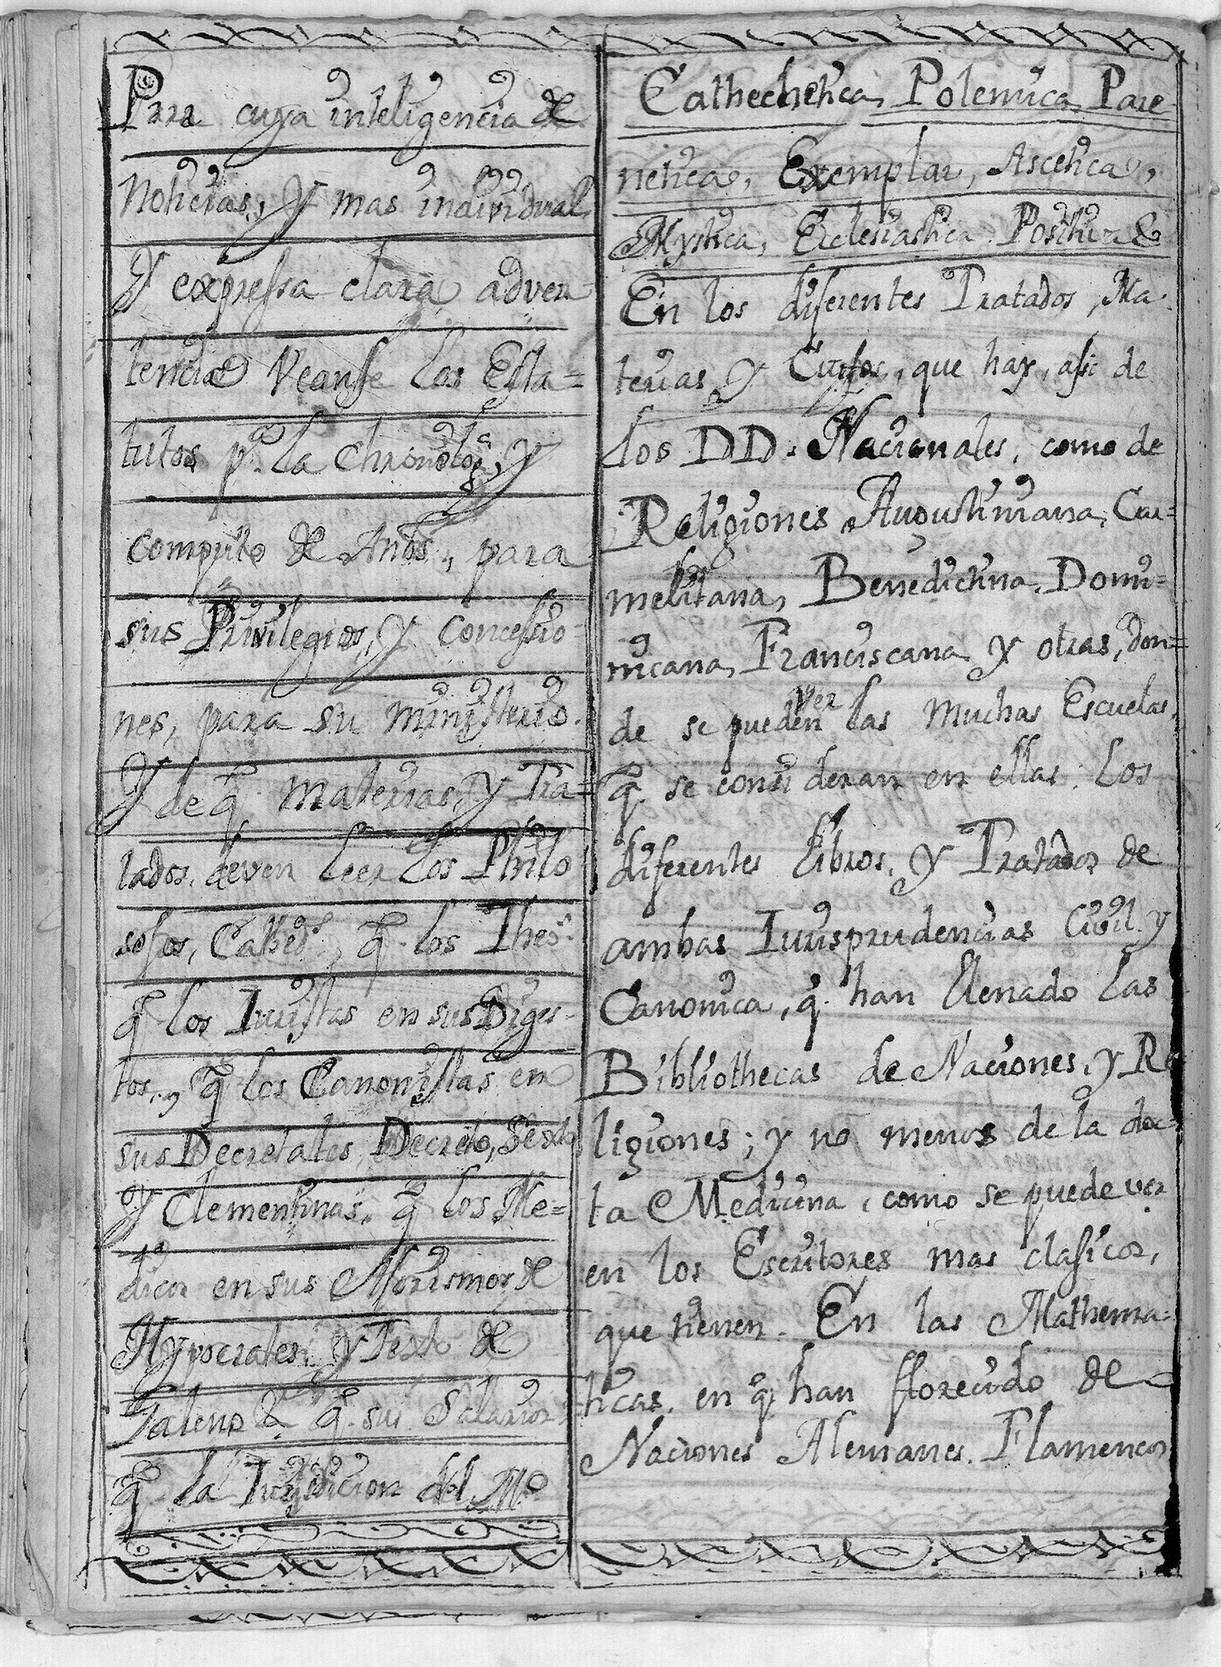 Para cuya inteligencia de
Noticias, y mas individual
Y expressa clara adver
tencia Veanse los Esta=
tutos pª la Chronolog.ª y
computo de Años, para
sus Privilegios, y concessio-
nes, para su ministerio.
Y de q̃ materias, y Tra=
tados, deven leer los Philo
sofos, Cathed.s, q̃ los Theo.s
q̃ los Iuristas en sus Diges-
tos, y q̃ los Canonistas en
sus Decretales, Decreto, Sexto,
Y Clementinas, q̃ los Me=
dicos en sus Aforismos de
Hypocrates, y Texto de
Galeno & q̃ sus Salarios
q̃ la Iurisdicion del Mº
Cathechetica, Polemica, Pare-
netica, Exemplar, Ascetica,
Mystica, Ecclesiastica Positiva &
En los diferentes Tratados, Ma-
terias y Cursos, que hay, asi de
los DD. Nacionales, como de
Religiones Augustiniana, Car=
melitana, Benedictina, Domi=
nicana, Franciscana y otras, don=
de se pueden ver las muchas Escuelas,
q̃ se consideran en ellas. Los
diferentes libros, y Tratados de
ambas Iurisprudencias Civil y
Canonica, q̃ han llenado las
Bibliothecas de Naciones, y Re
ligiones; y no menos de la doc-
ta Medicina, como se puede ver
en los Escritores mas clasicos,
que tienen. En las Mathema-
ticas, en q̃ han florecido de
Naciones Alemanes, Flamencos